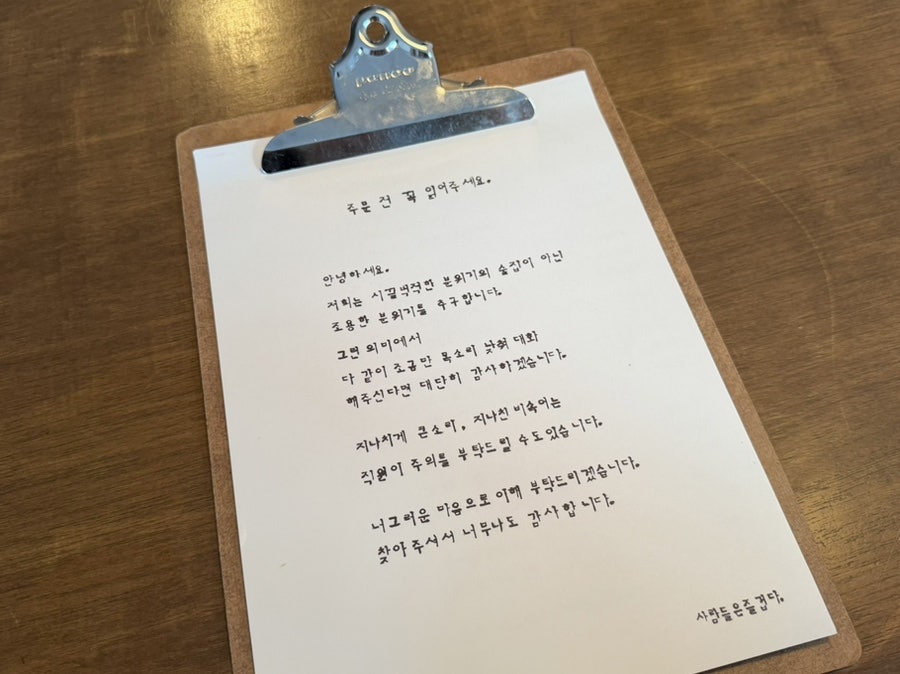 주문 전 꼭 읽어주세요.
안녕하세요.
저희는 시끌벅적한 분위기의 술집이 아닌
조용한 분위기를 추구합니다.
그런 의미에서
다 같이 조금만 목소리 낮춰 대화
해주신다면 대단히 감사하겠습니다.
지나치게 큰소리, 지나친 비속어는
직원이 주의를 부탁드릴 수도있습니다.
너그러운 마음으로 이해 부탁드리겠습니다.
찾아주셔서 너무나도 감사합니다.
사람들은즐겁다.